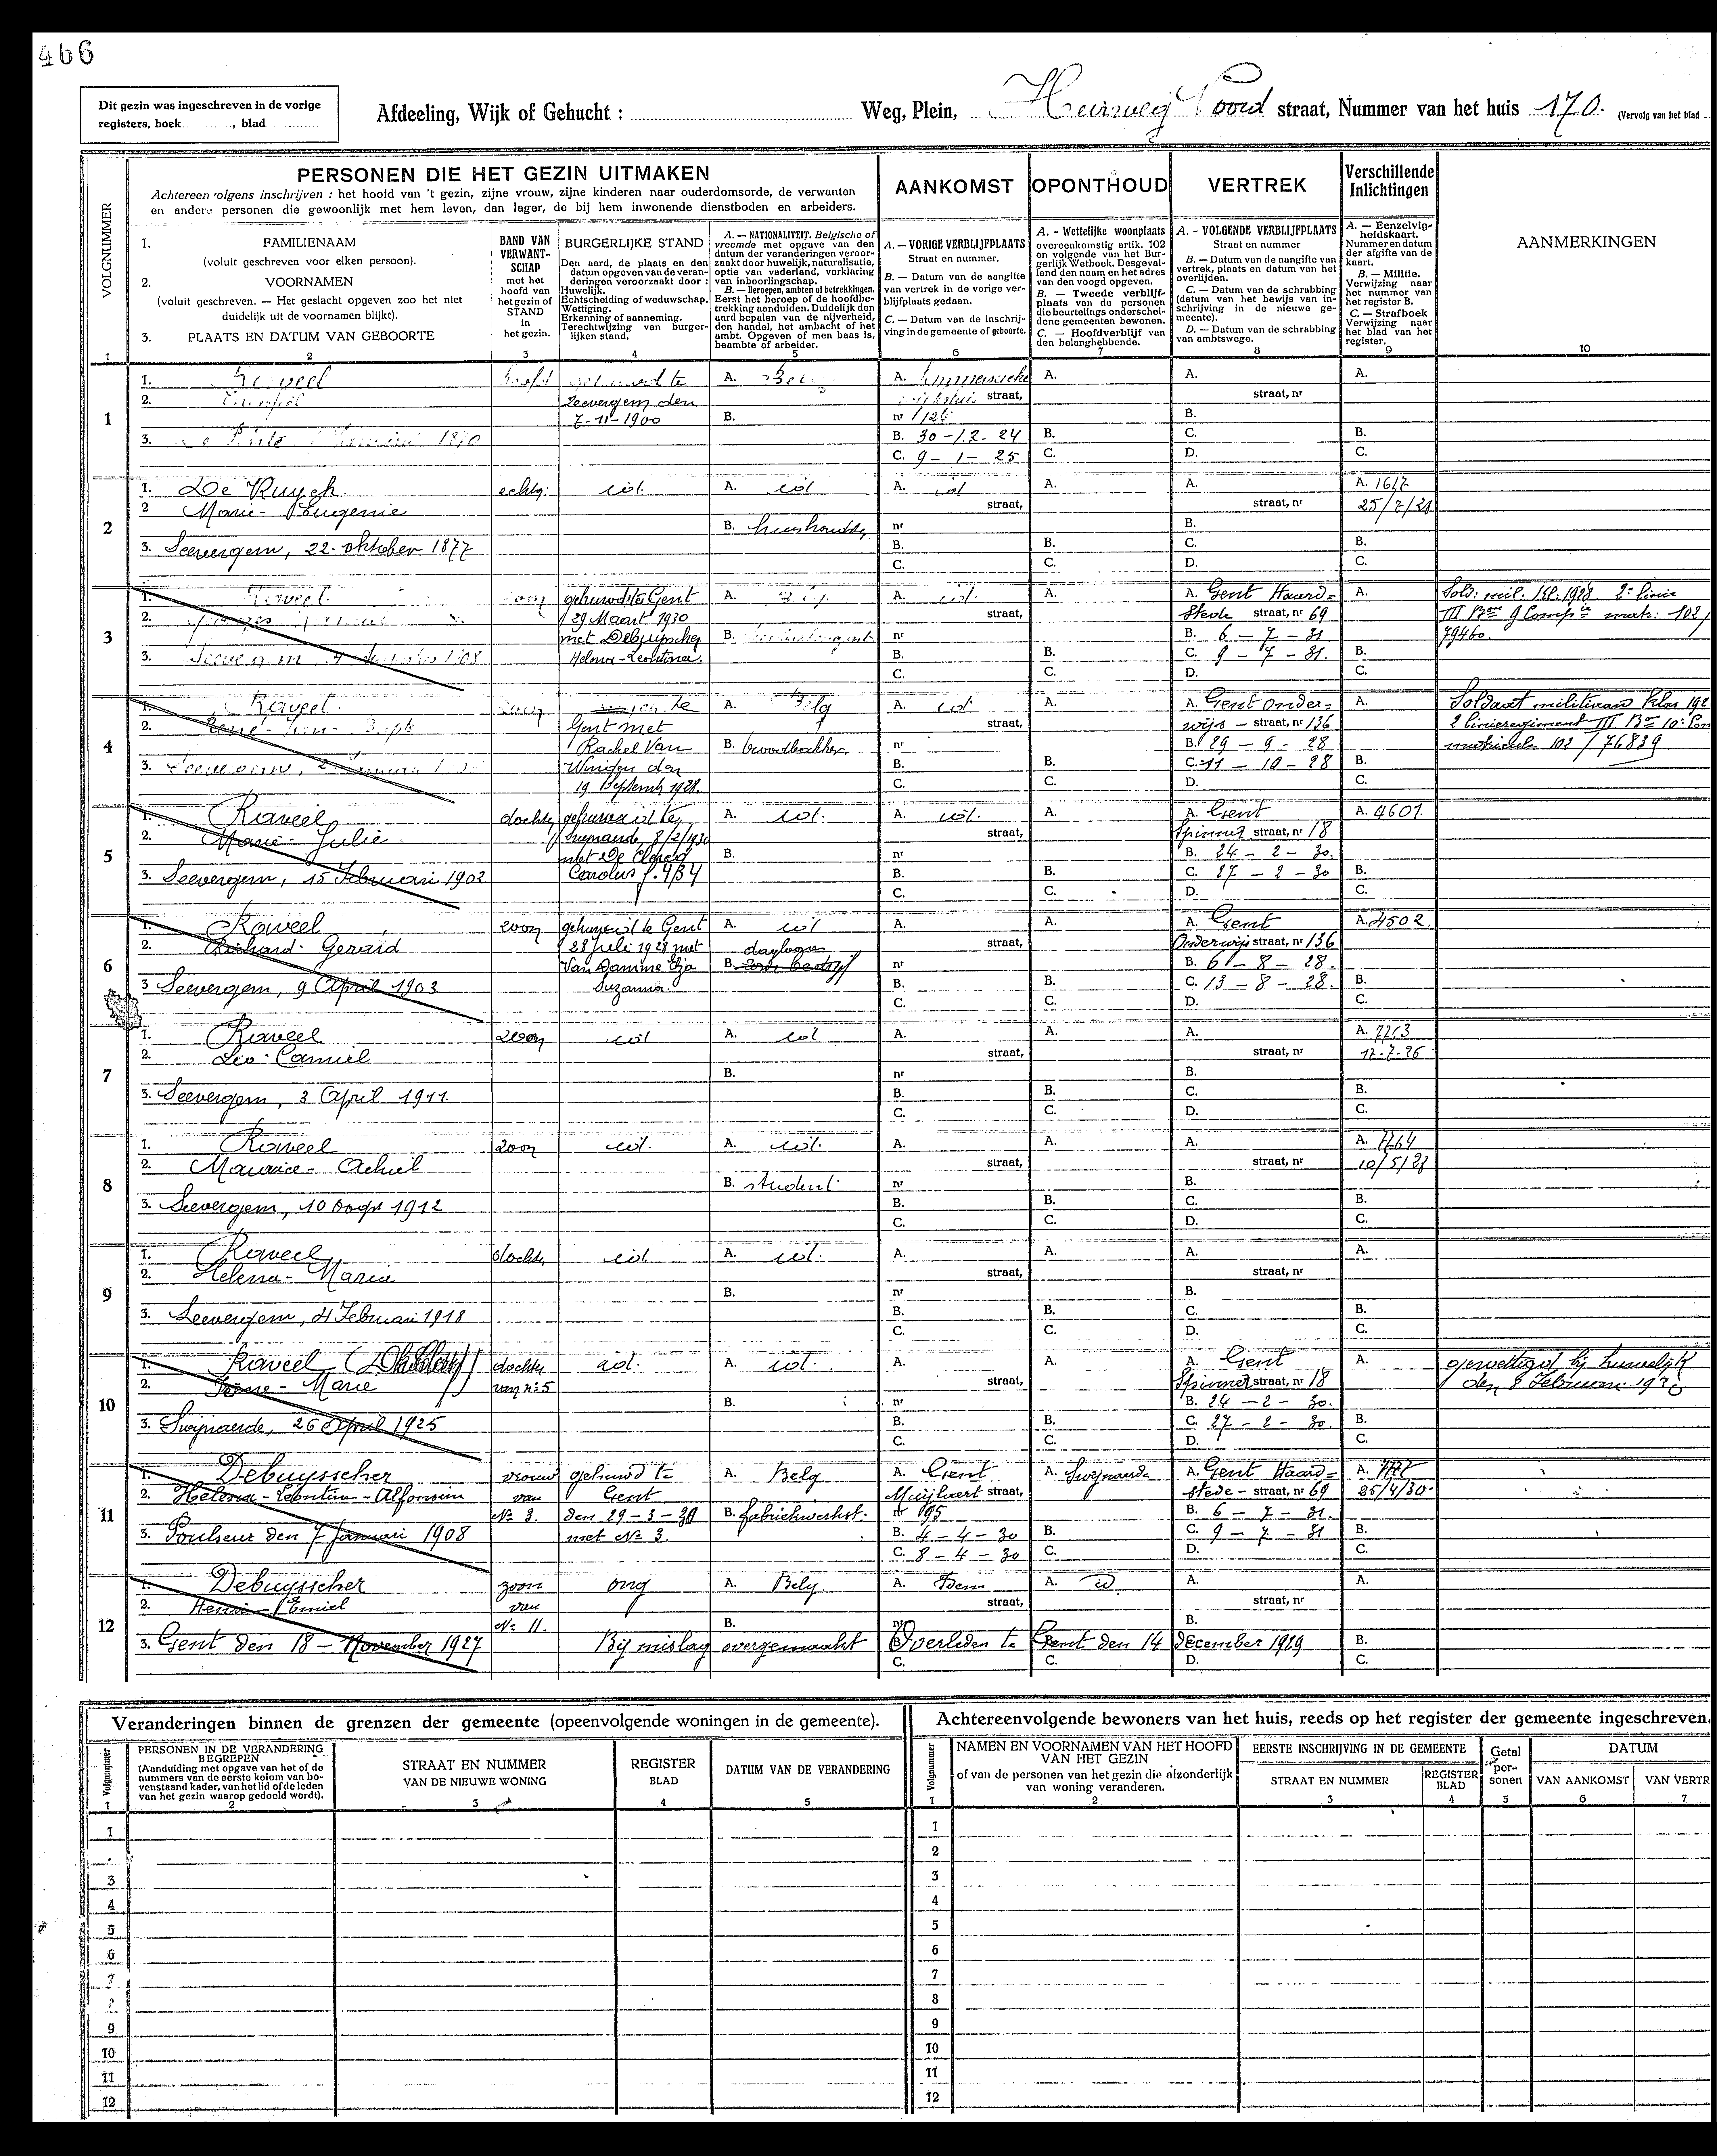 466
Dit gezin was ingeschreven in de vorige
registers, boek , blad
Afdeeling, Wijk of Gehucht : Weg, Plein, Heirweg Noord straat, Nummer van het huis 170. (Vervolg van het blad
PERSONEN DIE HET GEZIN UITMAKEN
Achtereenvolgens inschrijven : het hoofd van 't gezin, zijne vrouw, zijne kinderen naar ouderdomsorde, de verwanten
en andere personen die gewoonlijk met hem leven, dan lager, de bij hem inwonende dienstboden en arbeiders.
AANKOMST
OPONTHOUD
VERTREK
Verschillende
Inlichtingen
VOLGNUMMER
1. FAMILIENAAM
(voluit geschreven voor elken persoon).
2. VOORNAMEN
(voluit geschreven. — Het geslacht opgeven zoo het niet
duidelijk uit de voornamen blijkt).
3. PLAATS EN DATUM VAN GEBOORTE
BAND VAN
VERWANT-
SCHAP
met het
hoofd van
het gezin of
STAND
in
het gezin.
BURGERLIJKE STAND
Den aard, de plaats en den
datum opgeven van de veran-
deringen veroorzaakt door :
Huwelijk.
Echtscheiding of weduwschap.
Wettiging.
Erkenning of aanneming.
Terechtwijzing van burger-
lijken stand.
A. — NATIONALITEIT. Belgische of
vreemde met opgave van den
datum der veranderingen veroor-
zaakt door huwelijk, naturalisatie,
optie van vaderland, verklaring
van inboorlingschap.
B. — Beroepen, ambten of betrekkingen.
Eerst het beroep of de hoofdbe-
trekking aanduiden. Duidelijk den
aard bepalen van de nijverheid,
den handel, het ambacht of het
ambt. Opgeven of men baas is,
beambte of arbeider.
A. — VORIGE VERBLIJFPLAATS
Straat en nummer.
B. — Datum van de aangifte
van vertrek in de vorige ver-
blijfplaats gedaan.
C. — Datum van de inschrij-
ving in de gemeente of geboorte.
A. - Wettelijke woonplaats
overeenkomstig artik. 102
en volgende van het Bur-
gerlijk Wetboek. Desgeval-
lend den naam en het adres
van den voogd opgeven.
B. — Tweede verblijf-
plaats van de personen
die beurtelings onderschei-
dene gemeenten bewonen.
C. — Hoofdverblijf van
den belanghebbende.
A. - VOLGENDE VERBLIJFPLAATS
Straat en nummer
B. — Datum van de aangifte van
vertrek, plaats en datum van het
overlijden.
C. — Datum van de schrabbing
(datum van het bewijs van in-
schrijving in de nieuwe ge-
meente).
D. — Datum van de schrabbing
van ambtswege.
A. — Eenzelvig-
heidskaart.
Nummer en datum
der afgifte van de
kaart.
B. — Militie.
Verwijzing naar
het nummer van
het register B.
C. — Strafboek
Verwijzing naar
het blad van het
register.
AANMERKINGEN
1 2 3 4 5 6 7 8 9 10
1
1. Raveel hoofd gehuwd te A. Belg A. A. A. A.
2. Zeevergem den straat, straat, nr
7-11-1900 B. nr 126 B.
3. 1870 B. 30-12-24 B. C. B.
C. 9-1-25 C. D. C.
2
1. De Ruyck echtg: id. A. id A. id A. A. A. 1617
2 Marie-Eugenie straat, straat, nr 25/7/21
B. nr B.
3. Seevergem, 22 oktober 1877 B. B. C. B.
C. C. D. C.
3
1. Raveel zoon gehuwd te Gent A. Belg. A. id. A. A. Gent Haard= A. Sold: mil. kl. 1928 2e linie
2. 29 Maart 1930 straat, stede straat, nr 69
met Debuysscher B. nr B. 6-7-31 79460.
3. Seevergem, 1908 Helena-Leontina. B. B. C. 9-7-31. B.
C. C. D. C.
4
1. Raveel. zoon A. Belg A. id A. A. Gent Onder= A. Soldaat militiaan klas 192
2. René Gent met straat, wijs- straat, nr 136 2 linieregiment III Bon 10e
Rachel Van B. broodbakker nr B. 29-9-28 matricule 102/76839
3. Seevergem, den B. B. C. 11-10-28 B.
19 Septemb 1928. C. C. D. C.
5
1. Raveel dochter gehuwd te A. id. A. id. A. A. Gent A. 4601.
2. Marie-Julie Swijnaarde 8/2/1930 straat, Spinner straat, nr 18
met De Clercq B. nr B. 24-2-30.
3. Seevergem, 15 Februari 1902 Carolus f. 434 B. B. C. 27-2-30 B.
C. C. D. C.
6
1. Raveel zoon gehuwd te Gent A. id A. A. A. Gent A. 4502.
2. Richard-Gerard 28 juli 1928 met dagloner straat, Onderwijs straat, nr 136
Van Damme Elza B. nr B. 6-8-28.
3 Seevergem, 9 April 1903 Suzanna. B. B. C. 13-8-28. B.
C. C. D. C.
7
1. Raveel zoon id A. id A. A. A. A. 7763
2. Leo-Camiel straat, straat, nr 17-7-26
B. nr B.
3. Seevergem, 3 April 1911. B. B. C. B.
C. C. D. C.
8
1. Raveel zoon id. A. id. A. A. A. A. 7764
2. Maurice-Achiel straat, straat, nr 10/5/27
B. student. nr B.
3. Seevergem, 10 oogst 1912 B. B. C. B.
C. C. D. C.
9
1. Raveel dochter id. A. id. A. A. A. A.
2. Helena-Maria straat, straat, nr
B. nr B.
3. Seevergem, 4 Februari 1918 B. B. C. B.
C. C. D. C.
10
1. Raveel dochter id. A. id. A. A. A. Gent A. gewettigd bij huwelijk
2. Marie van nr 5 straat, Spinner straat, nr 18 den 8 Februari 1930
B. nr B. 24-2-30.
3. Swijnaerde, 26 April 1925 B. B. C. 27-2-30. B.
C. C. D. C.
11
1. Debuysscher vrouw gehuwd te A. Belg A. Gent A. Swijnaarde A. Gent Haard= A.
2. Helena-Leontina-Alfonsina van Gent straat, stede- straat, nr 69 25/4/30.
No 3. den 29-3-30 B. fabriekwerkst. nr 195 B. 6-7-31.
3. Poulseur den 7 Januari 1908 met No 3. B. 4-4-30 B. C. 9-7-31 B.
C. 8-4-30 C. D. C.
12
1. Debuysscher zoon ong A. Belg. A. Idem A. id A. A.
2. Henri-Emiel van straat, straat, nr
No 11. B. nr B.
3. Gent den 18-November 1927 Bij mislag overgemaakt Overleden te Gent den 14 december 1929 B.
C. C. D. C.
Veranderingen binnen de grenzen der gemeente (opeenvolgende woningen in de gemeente).
Volgnummer
PERSONEN IN DE VERANDERING
BEGREPEN
(Aanduiding met opgave van het of de
nummers van de eerste kolom van bo-
venstaand kader, van het lid of de leden
van het gezin waarop gedoeld wordt).
STRAAT EN NUMMER
VAN DE NIEUWE WONING
REGISTER
BLAD
DATUM VAN DE VERANDERING
1 2 3 4 5
1
3
4
5
6
7
9
10
11
12
Achtereenvolgende bewoners van het huis, reeds op het register der gemeente ingeschreven.
Volgnummer
NAMEN EN VOORNAMEN VAN HET HOOFD
VAN HET GEZIN
of van de personen van het gezin die afzonderlijk
van woning veranderen.
EERSTE INSCHRIJVING IN DE GEMEENTE
STRAAT EN NUMMER
REGISTER
BLAD
Getal
per-
sonen
DATUM
VAN AANKOMST
VAN VERTR
1 2 3 4 5 6 7
1
2
3
4
5
6
7
8
9
10
11
12